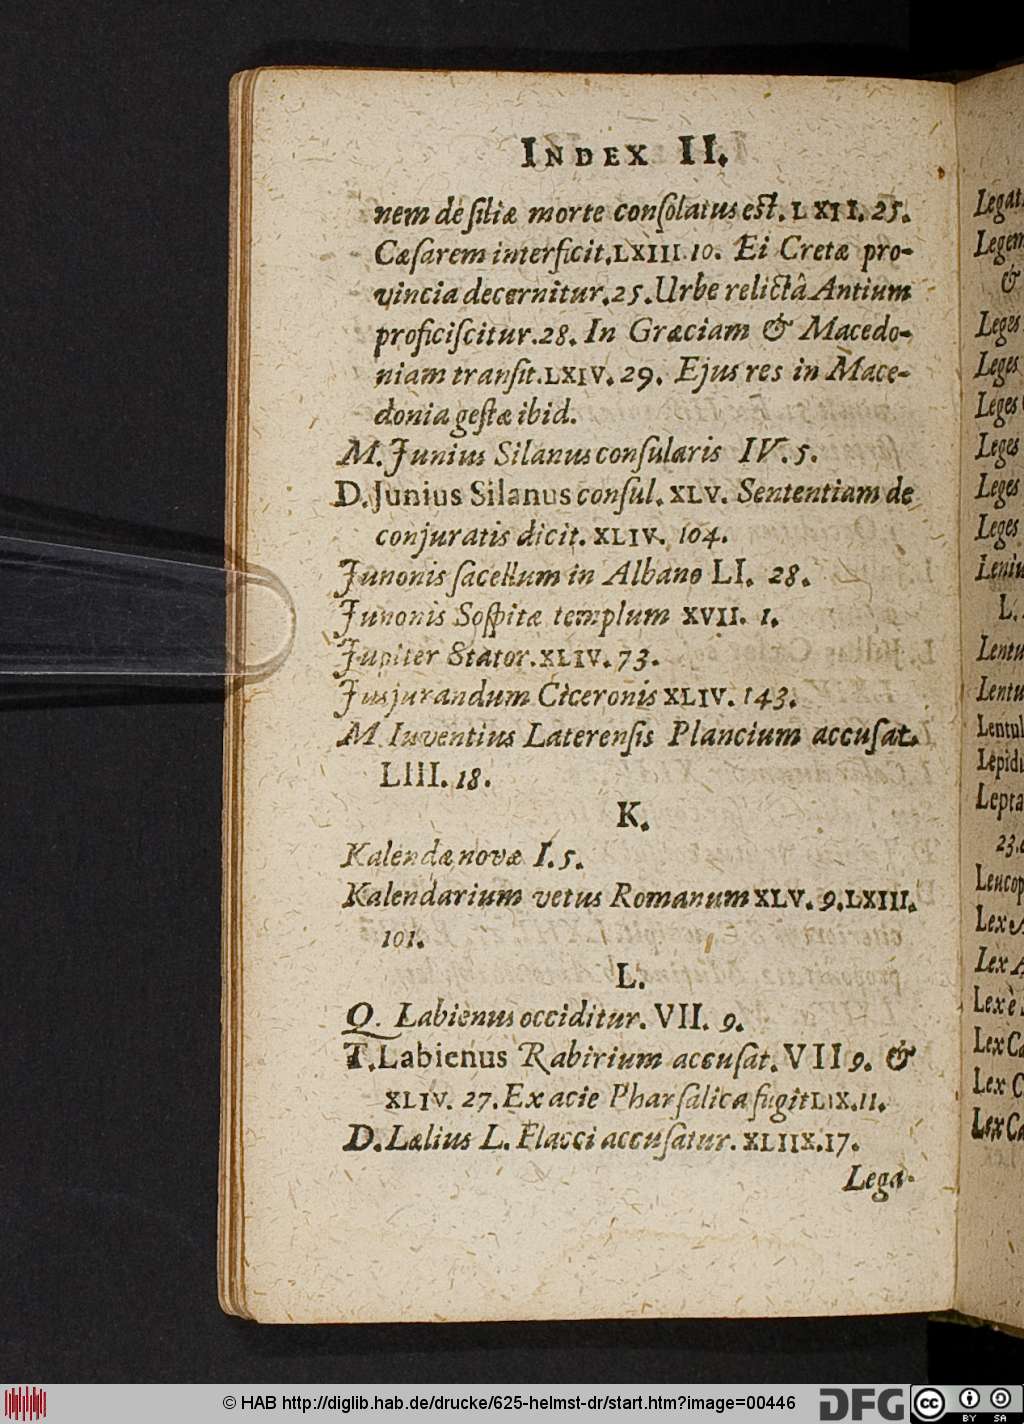 INDEX II.
nem de filiæ morte consolatus est. LXII. 25.
Cæsarem interficit. LXIII. 10. Ei Cretæ pro-
vincia decernitur. 25. Urbe relictâ Antium
proficiscitur. 28. In Græciam & Macedo-
niam transit. LXIV. 29. Ejus res in Mace-
donia gestæ ibid.
M. Junius Silanus consularis IV. 5.
D. Junius Silanus consul. XLV. Sententiam de
conjuratis dicit. XLIV. 104.
Junonis sacellum in Albano LI. 28.
Junonis Sospitæ templum XVII. 1.
Jupiter Stator. XLIV. 73.
Jusjurandum Ciceronis XLIV. 143.
M. Iuventius Laterensis Plancium accusat.
LIII. 18.
K.
Kalendæ novæ I. 5.
Kalendarium vetus Romanum XLV. 9. LXIII.
101.
L.
Q. Labienus occiditur. VII. 9.
T. Labienus Rabirium accusat. VII 9. &
XLIV. 27. Ex acie Pharsalica fugit LIX. 11.
D. Lælius L. Flacci accusatur. XLIIX. 17.
Lega-
Legat
Legem
&
Leges
Leges
Leges
Leges
Leges
Leges
Leniu
L.
Lentu
Lentu
Lentul
Lepidu
Lepta
23.
Leucop
Lex
Lex
Lex è
Lex Ca
Lex C
Lex Ca
© HAB http://diglib.hab.de/drucke/625-helmst-dr/start.htm?image=00446
DFG
cc
BY SA